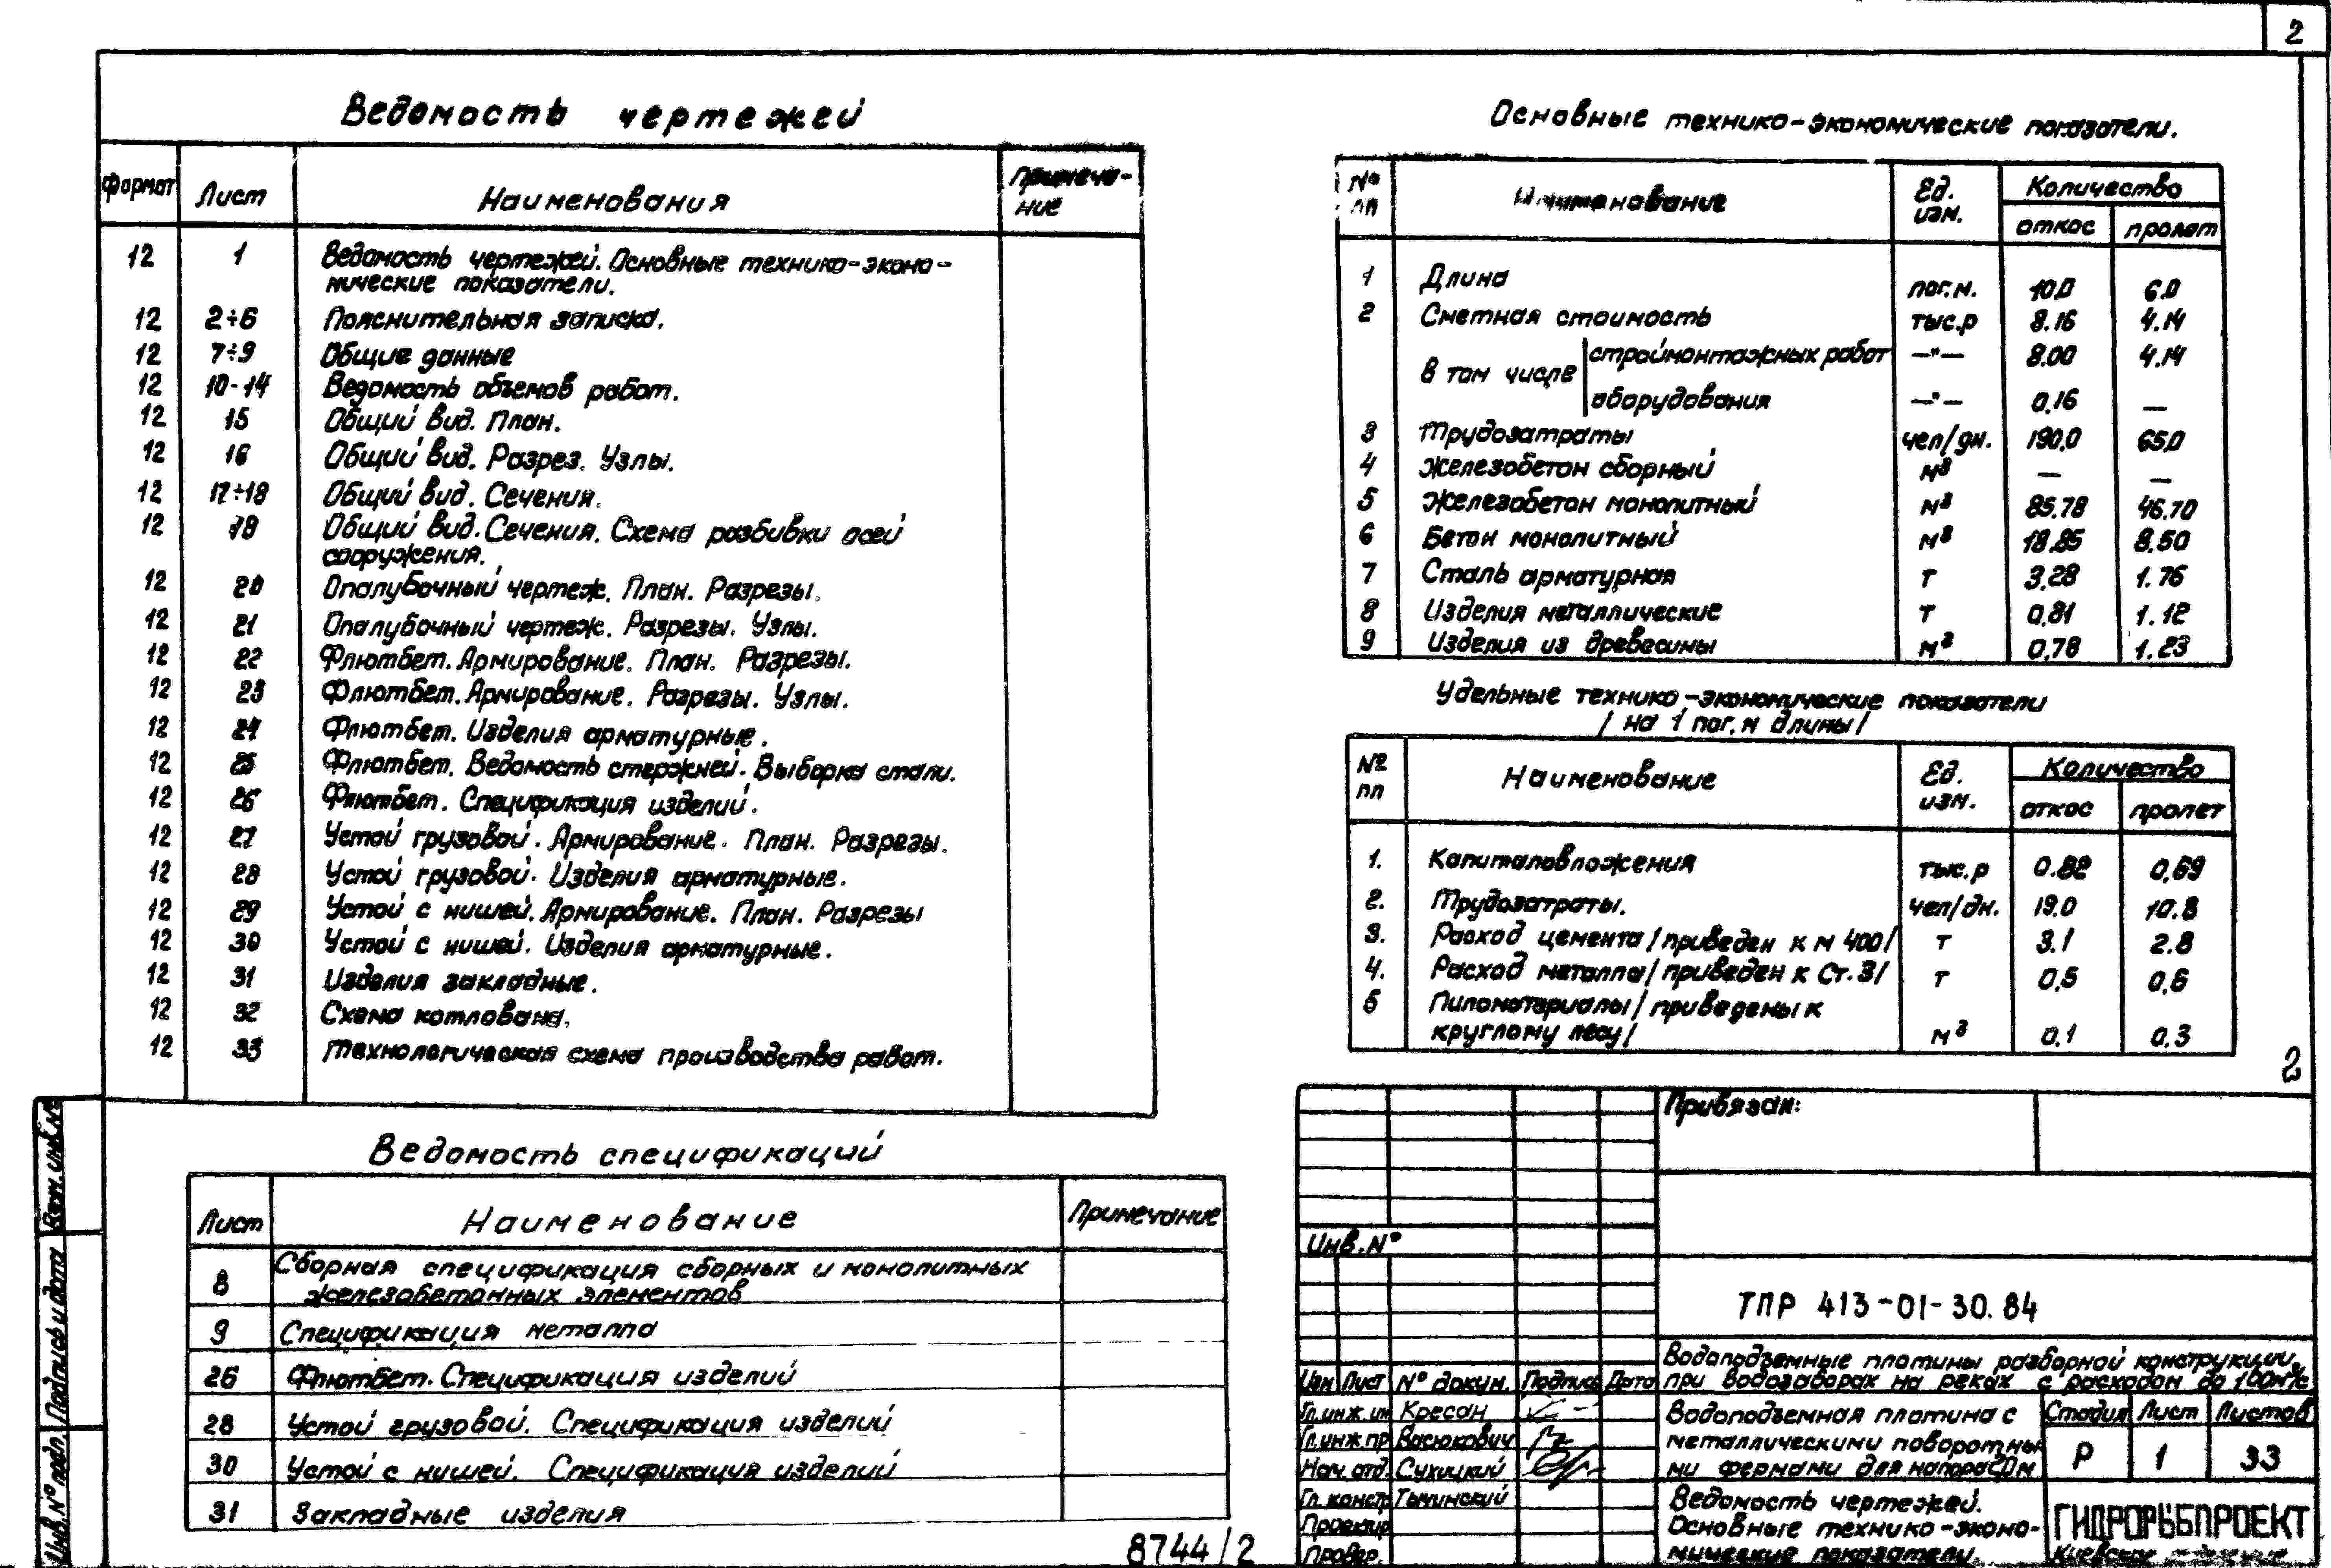 2
Ведомость чертежей
Формат Лист Наименования Примеча-
ние
12 1 Ведомость чертежей. Основные технико-эконо-
мические показатели.
12 2÷6 Пояснительная записка.
12 7÷9 Общие данные
12 10-14 Ведомость объемов работ.
12 15 Общий вид. План.
12 16 Общий вид. Разрез. Узлы.
12 17÷18 Общий вид. Сечения.
12 Общий вид. Сечения. Схема разбивки осей
сооружения.
12 20 Опалубочный чертеж. План. Разрезы.
12 21 Опалубочный чертеж. Разрезы. Узлы.
12 22 Флютбет. Армирование. План. Разрезы.
12 23 Флютбет. Армирование. Разрезы. Узлы.
12 24 Флютбет. Изделия арматурные.
12 25 Флютбет. Ведомость стержней. Выборка стали.
12 26 Флютбет. Спецификация изделий.
12 27 Устой грузовой. Армирование. План. Разрезы.
12 28 Устой грузовой. Изделия арматурные.
12 29 Устой с нишей. Армирование. План. Разрезы
12 30 Устой с нишей. Изделия арматурные.
12 31 Изделия закладные.
12 32 Схема котлована.
12 33 Технологическая схема производства работ.
Ведомость спецификаций
Лист Наименование Примечание
8 Сборная спецификация сборных и монолитных
железобетонных элементов
9 Спецификация металла
26 Флютбет. Спецификация изделий
28 Устой грузовой. Спецификация изделий
30 Устой с нишей. Спецификация изделий
31 Закладные изделия
8744/2
Основные технико-экономические показатели.
№ пп Наименование Ед. изм. Количество
откос пролет
1 Длина пог.м. 10.0 6.0
2 Сметная стоимость тыс.р 8.16 4.14
в том числе строймонтажных работ —"— 8.00 4.14
оборудования —"— 0,16 —
3 Трудозатраты чел/дн. 190,0 65.0
4 Железобетон сборный м³ — —
5 Железобетон монолитный м³ 85.78 46.70
6 Бетон монолитный м³ 18.85 8.50
7 Сталь арматурная т 3,28 1.76
8 Изделия металлические т 0,81 1.12
9 Изделия из древесины м³ 0,78 1.23
Удельные технико-экономические показатели
/ на 1 пог.м длины/
№ пп Наименование Ед. изм. Количество
откос пролет
1. Капиталовложения тыс.р 0.82 0,69
2. Трудозатраты. чел/дн. 19.0 10.8
3. Расход цемента/приведен к М 400/ т 3.1 2.8
4. Расход металла/приведен к Ст.3/ т 0,5 0,6
5 Пиломатериалы/приведены к
круглому лесу/ м³ 0.1 0.3
2
Привязан:
Инв.№
ТПР 413-01-30.84
Водоподъемные плотины разборной конструкции
при водозаборах на реках с расходом до 100м³/с
Изм Лист № докум. Подпись Дата
Гл.инж.ин Кресан
Гл.инж.пр Васюкович
Нач.отд. Сухицкий
Гл.констр Тычинский
Проектир
Провер.
Водоподъемная плотина с
металлическими поворотны-
ми фермами для напора
Стадия Лист Листов
Р 1 33
Ведомость чертежей.
Основные технико-эконо-
мические показатели
ГИДРОРЫБПРОЕКТ
Киевское отделение
Взам.инв.№
Подпись и дата
Инв.№ подл.